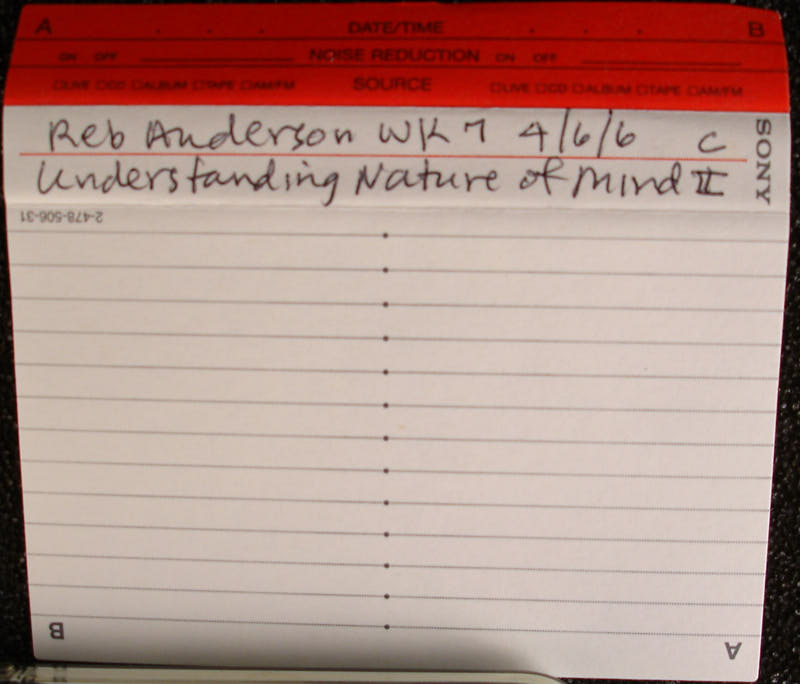 A DATE/TIME B
ON OFF NOISE REDUCTION ON OFF
□LIVE □CD □ALBUM □TAPE □AM/FM SOURCE □LIVE □CD □ALBUM □TAPE □AM/FM
Reb Anderson WK 7 4/6/6 C
Understanding Nature of Mind II
SONY
2-478-506-31
B A